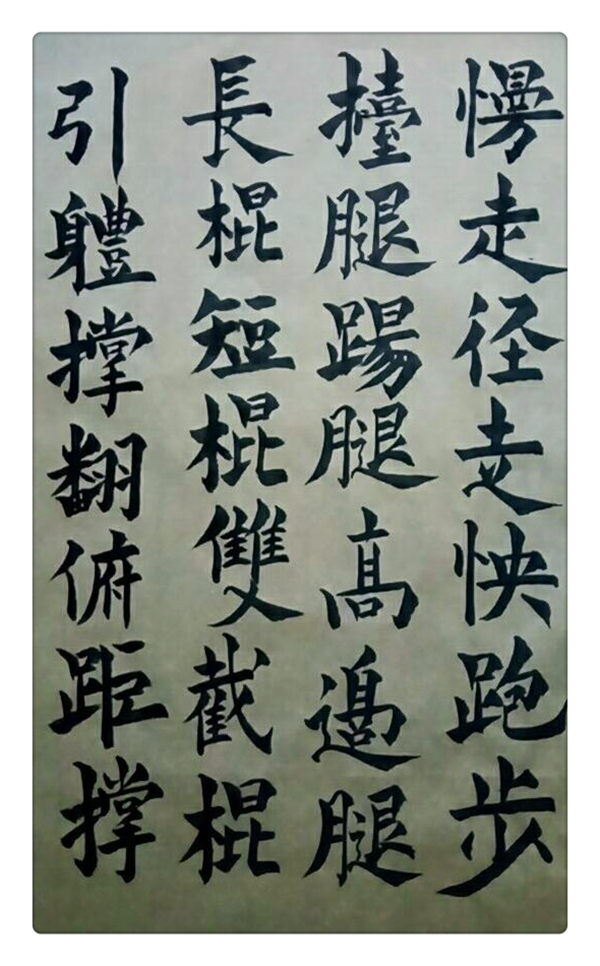 慢走径走快跑步
擡腿踢腿高邊腿
長棍短棍雙截棍
引軆撑翻俯距撑